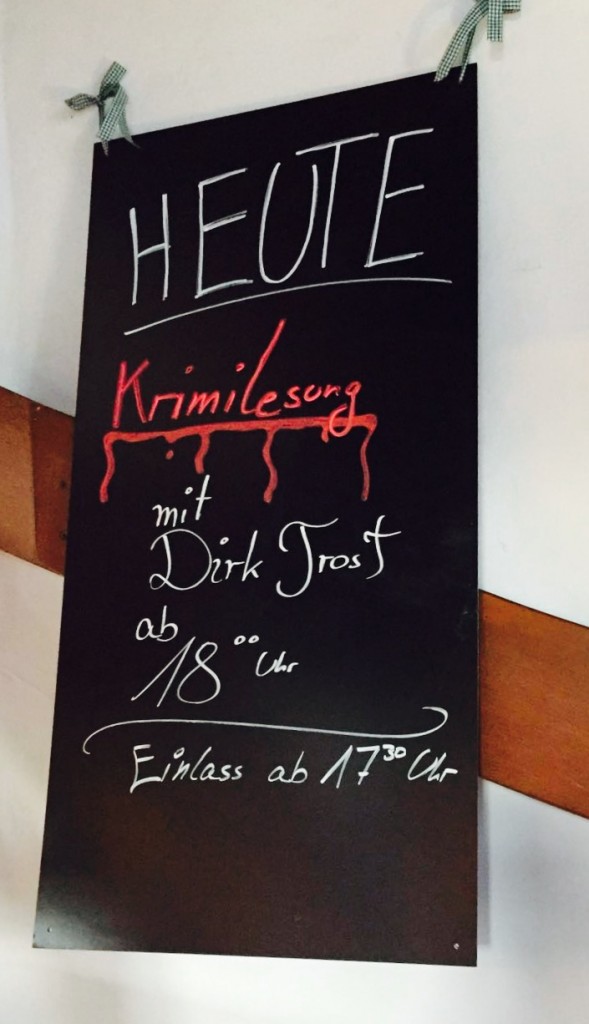 HEUTE
Krimilesung
mit
Dirk Trost
ab
18⁰⁰ Uhr
Einlass ab 17³⁰ Uhr